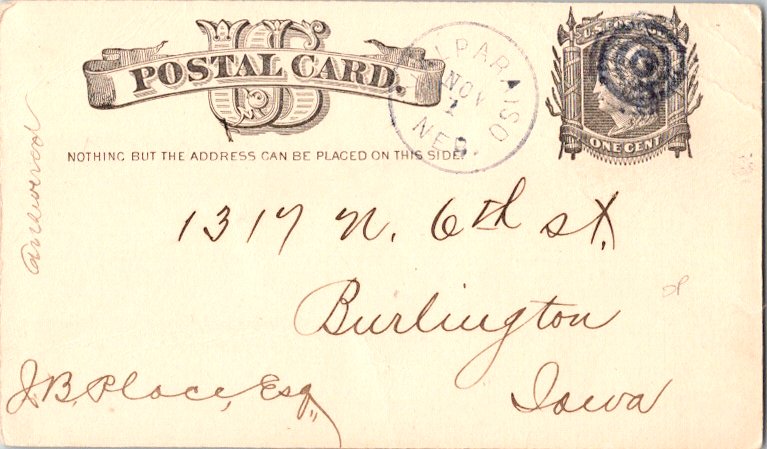 US
POSTAL CARD.
U.S. POSTAGE
ONE CENT
VALPARAISO
NOV
1
NEB.
NOTHING BUT THE ADDRESS CAN BE PLACED ON THIS SIDE.
answered
1317 N. 6th st.
Burlington
Iowa
J. B. Place, Esq.